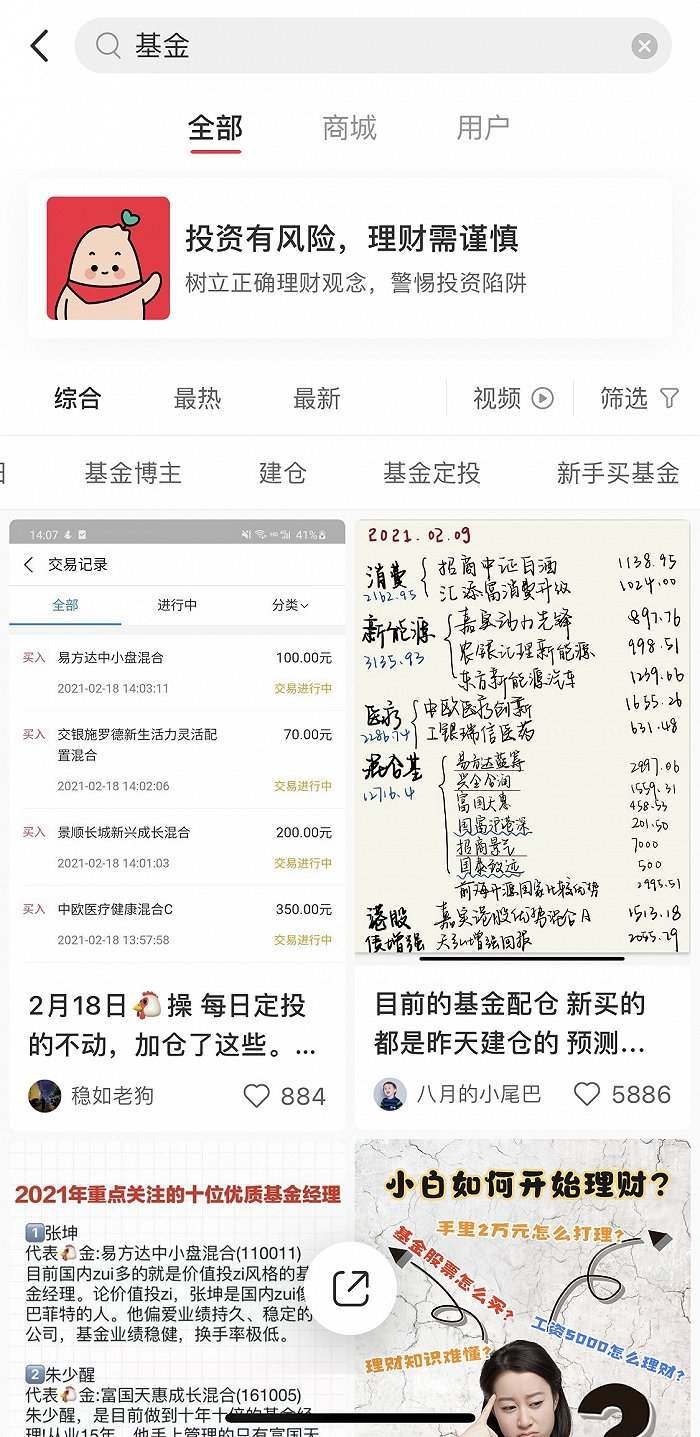 基金
全部
商城
用户
投资有风险，理财需谨慎
树立正确理财观念，警惕投资陷阱
综合
最热
最新
视频
筛选
基金博主
建仓
基金定投
新手买基金
14:07
41%
交易记录
全部
进行中
分类
买入 易方达中小盘混合 100.00元
2021-02-18 14:03:11 交易进行中
买入 交银施罗德新生活力灵活配 70.00元
置混合
2021-02-18 14:02:06 交易进行中
买入 景顺长城新兴成长混合 200.00元
2021-02-18 14:01:03 交易进行中
买入 中欧医疗健康混合C 350.00元
2021-02-18 13:57:58 交易进行中
2月18日🐔操 每日定投
的不动，加仓了这些。...
稳如老狗
884
2021.02.09
消费 招商中证白酒 1138.95
2162.95 汇添富消费升级 1024.00
新能源 嘉实动力先锋 897.76
3135.93 农银汇理新能源 998.51
东方新能源汽车 1239.66
医疗 中欧医疗创新 1655.26
2286.74 工银瑞信医药 631.48
混合基 易方达蓝筹 2997.06
12716.4 兴全合润 1559.31
富国天惠 458.53
国富沪港深 201.50
招商景气 7000
国泰致远 500
前海开源国家比较优势 2995.51
港股 嘉实港股优势混合A 1513.18
债增强 天弘增强回报 2055.29
目前的基金配仓 新买的
都是昨天建仓的 预测...
八月的小尾巴
5886
2021年重点关注的十位优质基金经理
1张坤
代表🐔金:易方达中小盘混合(110011)
目前国内zui多的就是价值投zi风格的基
金经理。论价值投zi，张坤是国内zui像
巴菲特的人。他偏爱业绩持久、稳定的
公司，基金业绩稳健，换手率极低。
2朱少醒
代表🐔金:富国天惠成长混合(161005)
朱少醒，是目前做到十年十倍的基金经
理!从业15年，他手上管理的只有富国天
小白如何开始理财？
手里2万元怎么打理？
基金股票怎么买？
工资5000怎么理财？
理财知识难懂？
?